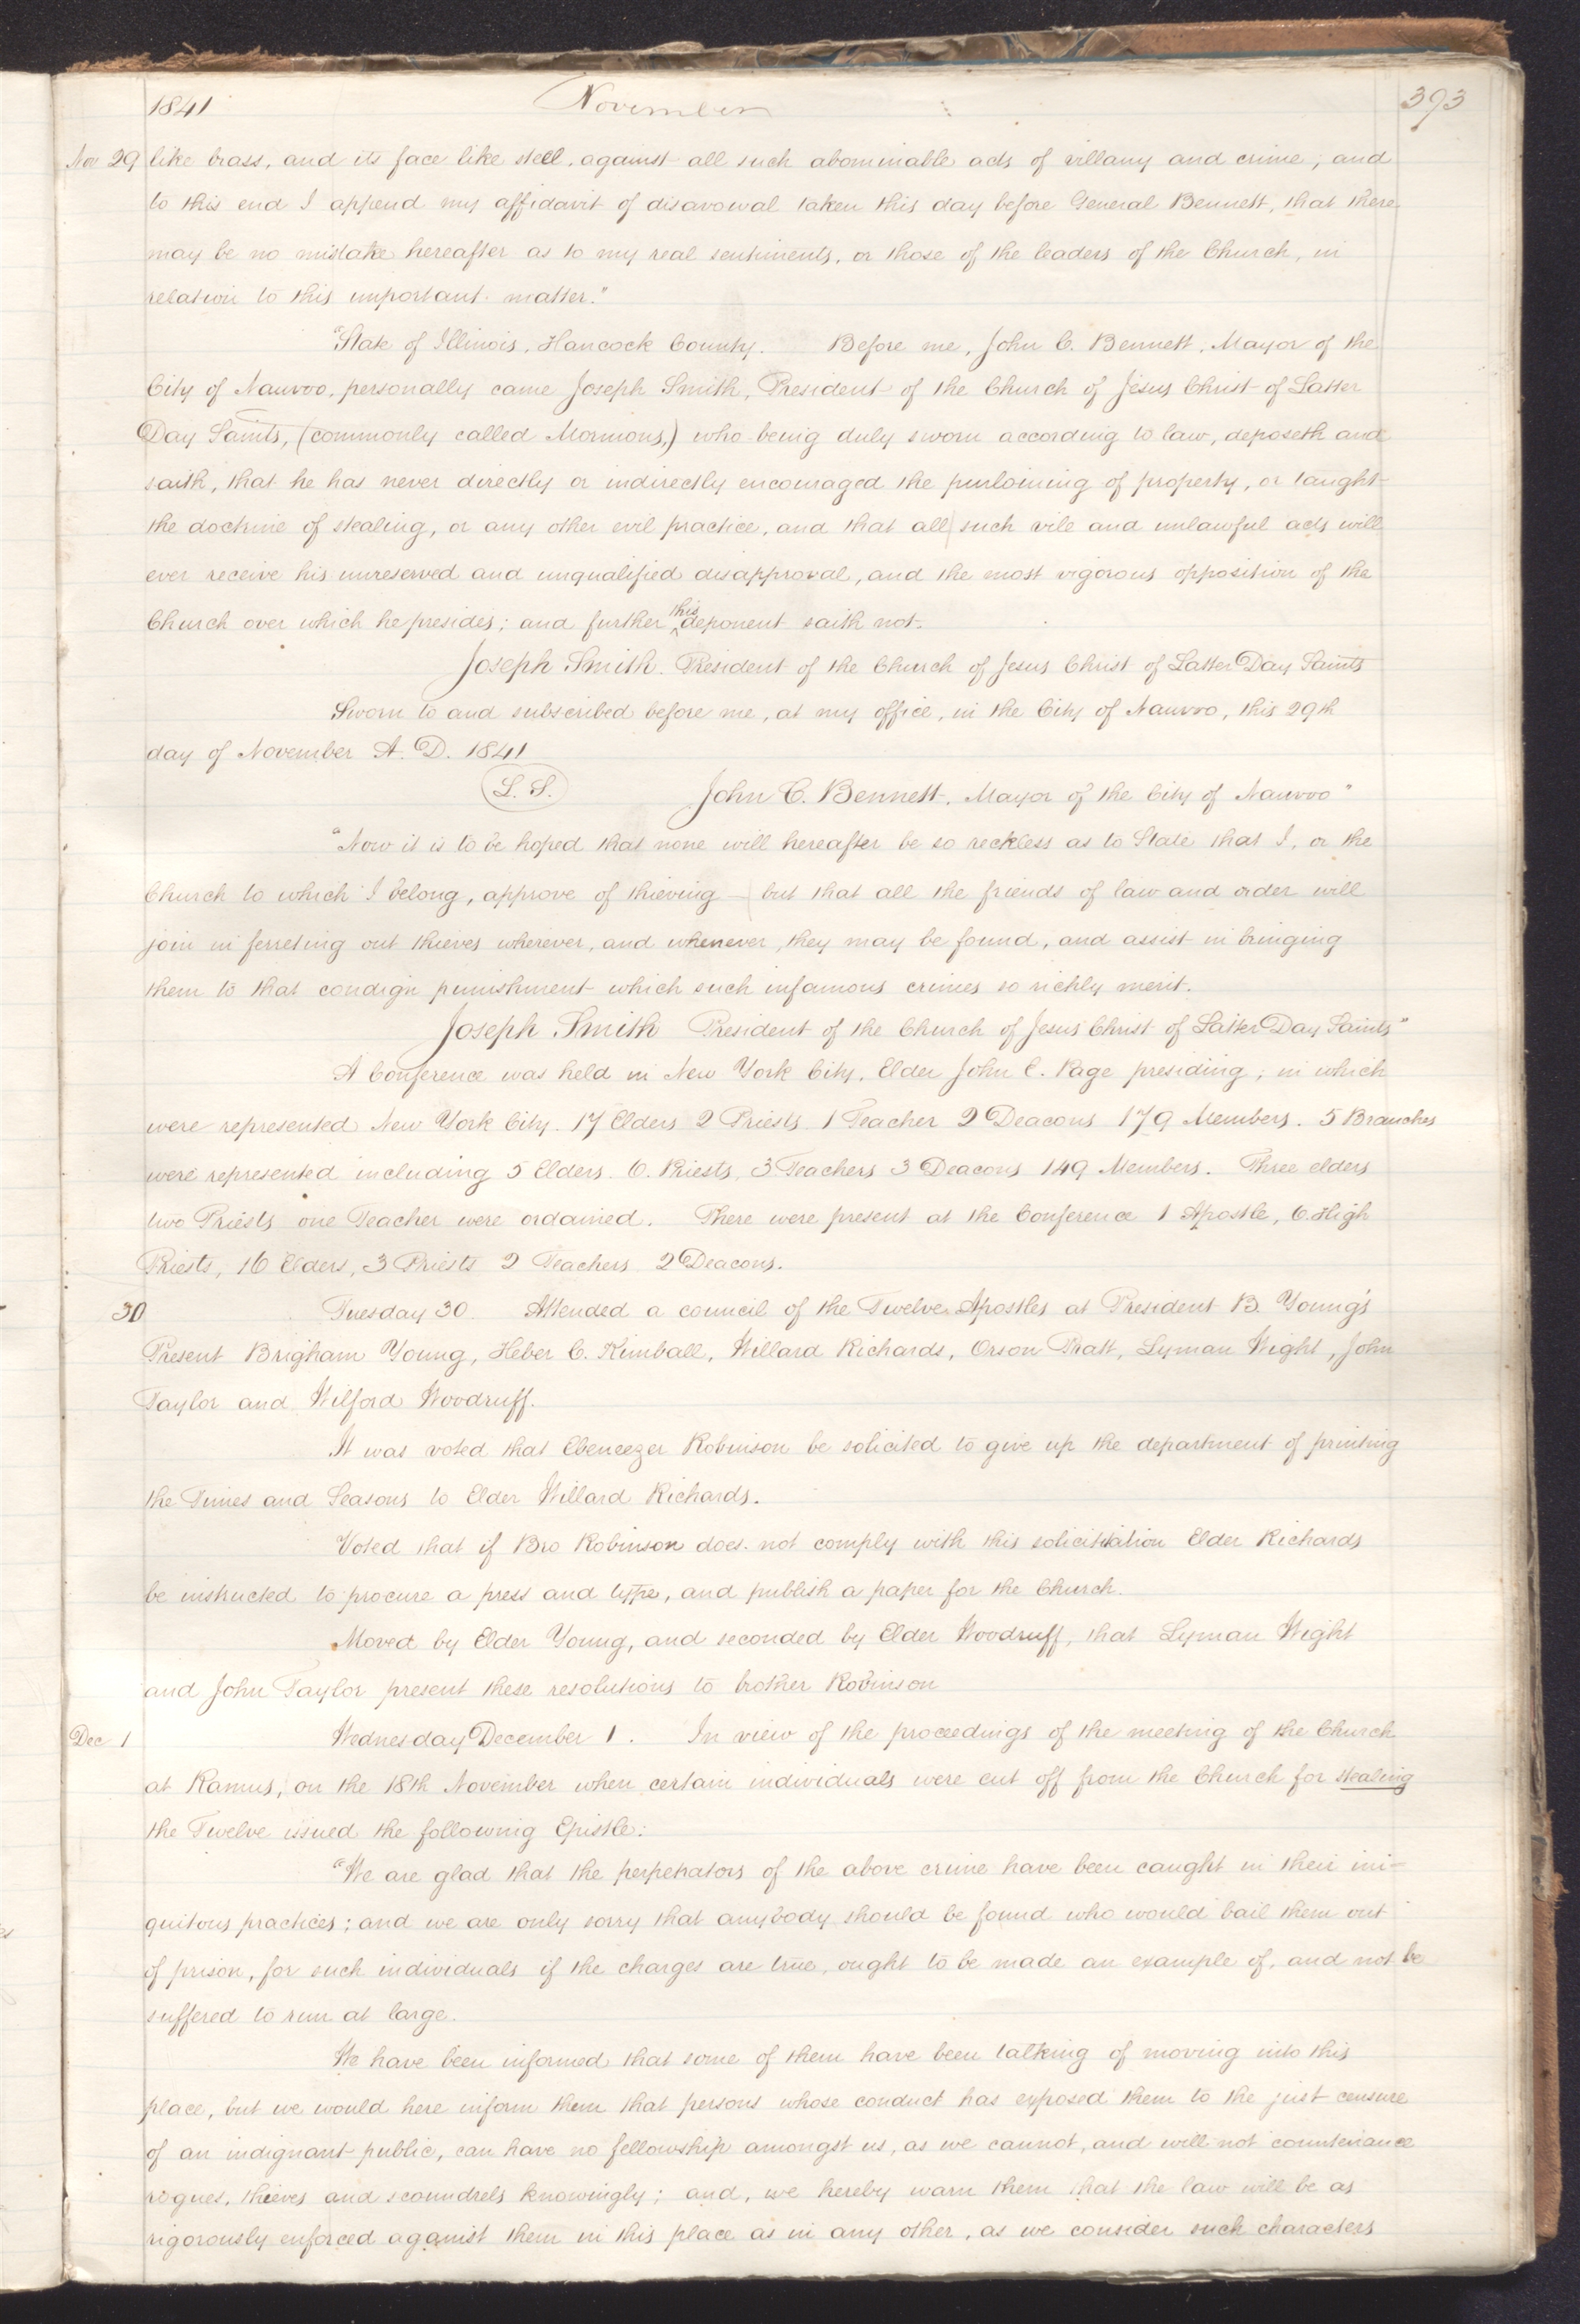 1841 November 393
Nov 29 like brass, and its face like steel, against all such abominable acts of villany and crime; and
to this end I append my affidavit of disavowal taken this day before General Bennett, that there
may be no mistake hereafter as to my real sentiments, or those of the leaders of the Church, in
relation to this important matter."
"State of Illinois, Hancock County. Before me, John C. Bennett, Mayor of the
City of Nauvoo, personally came Joseph Smith, President of the Church of Jesus Christ of Latter
Day Saints, (commonly called Mormons,) who being duly sworn according to law, deposeth and
saith, that he has never directly or indirectly encouraged the purloining of property, or taught
the doctrine of stealing, or any other evil practice, and that all such vile and unlawful acts will
ever receive his unreserved and unqualified disapproval, and the most vigorous opposition of the
Church over which he presides; and further this deponent saith not.
Joseph Smith. President of the Church of Jesus Christ of Latter Day Saints
Sworn to and subscribed before me, at my office, in the City of Nauvoo, this 29th
day of November A. D. 1841
L. S. John C. Bennett, Mayor of the City of Nauvoo"
"Now it is to be hoped that none will hereafter be so reckless as to State that I, or the
Church to which I belong, approve of thieving — but that all the friends of law and order will
join in ferreting out thieves wherever, and whenever, they may be found, and assist in bringing
them to that condign punishment which such infamous crimes so richly merit.
Joseph Smith President of the Church of Jesus Christ of Latter Day Saints"
A Conference was held in New York City, Elder John E. Page presiding; in which
were represented New York City. 17 Elders 2 Priests 1 Teacher 2 Deacons 179 Members. 5 Branches
were represented including 5 Elders. 6. Priests, 3 Teachers 3 Deacons 149 Members. Three elders
two Priests one Teacher were ordained. There were present at the Conference 1 Apostle, 6. High
Priests, 16 Elders, 3 Priests 2 Teachers 2 Deacons.
30 Tuesday 30. Attended a council of the Twelve Apostles at President B. Young's
Present Brigham Young, Heber C. Kimball, Willard Richards, Orson Pratt, Lyman Wight, John
Taylor and Wilford Woodruff.
It was voted that Ebeneezer Robinson be solicited to give up the department of printing
the Times and Seasons to Elder Willard Richards.
Voted that if Bro Robinson does. not comply with this solicitation Elder Richards
be instructed to procure a press and type, and publish a paper for the Church.
Moved by Elder Young, and seconded by Elder Woodruff, that Lyman Wight
and John Taylor present these resolutions to brother Robinson
Dec 1 Wednesday December 1. In view of the proceedings of the meeting of the Church
at Ramus, on the 18th November when certain individuals were cut off from the Church for stealing
the Twelve issued the following Epistle:
"We are glad that the perpetrators of the above crime have been caught in their ini-
quitous practices; and we are only sorry that anybody should be found who would bail them out
of prison, for such individuals if the charges are true, ought to be made an example of, and not be
suffered to run at large.
We have been informed that some of them have been talking of moving into this
place, but we would here inform them that persons whose conduct has exposed them to the just censure
of an indignant public, can have no fellowship amongst us, as we cannot, and will not countenance
rogues, thieves and scoundrels knowingly; and, we hereby warn them that the law will be as
rigorously enforced against them in this place as in any other, as we consider such characters